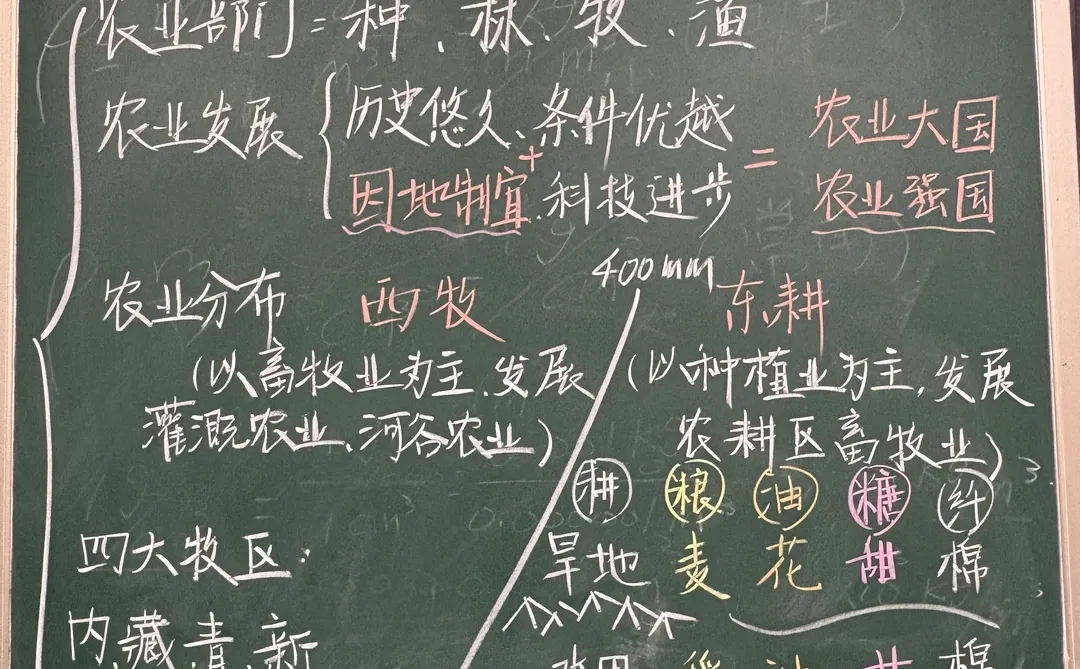 农业部门=种、林、牧、渔
农业发展{历史悠久、条件优越
因地制宜+科技进步
=农业大国
农业强国
农业分布 西牧 400mm 东耕
(以畜牧业为主,发展
灌溉农业、河谷农业)
(以种植业为主,发展
农耕区畜牧业)
耕 粮 油 糖 纤
四大牧区:
旱地 麦 花 甜 棉
内、藏、青、新
棉